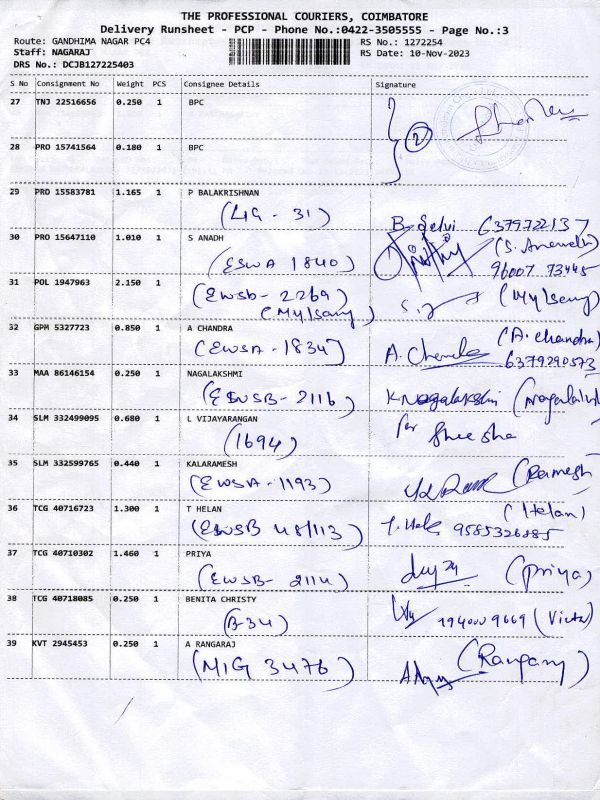 THE PROFESSIONAL COURIERS, COIMBATORE
Delivery Runsheet - PCP - Phone No.:0422-3505555 - Page No.:3
Route: GANDHIMA NAGAR PC4 RS No.: 1272254
Staff: NAGARAJ RS Date: 10-Nov-2023
DRS No.: DCJB127225403
S No Consignment No Weight PCS Consignee Details Signature
27 TNJ 22516656 0.250 1 BPC
2
28 PRO 15741564 0.180 1 BPC
29 PRO 15583781 1.165 1 P BALAKRISHNAN
(LIG - 31) B. Selvi 6379722137
30 PRO 15647110 1.010 1 S ANADH
(EWSA 1840) (S. Anandh)
96007 73445
31 POL 1947963 2.150 1 (EWSB - 2269) (Mylsamy)
(Mylsamy)
32 GPM 5327723 0.850 1 A CHANDRA (A. Chandra)
(EWSA - 1834) A. Chandra 6379290573
33 MAA 86146154 0.250 1 NAGALAKSHMI
(EWSB - 2116) K Nagalakshmi
34 SLM 332499095 0.680 1 L VIJAYARANGAN
(1694) for Sheesha
35 SLM 332599765 0.440 1 KALARAMESH
(EWSA - 1193) (Ramesh)
36 TCG 40716723 1.300 1 T HELAN (Helan)
(EWSB 48/113) T. Hela 9585326885
37 TCG 40710302 1.460 1 PRIYA
(EWSB - 2114) (Priya)
38 TCG 40718085 0.250 1 BENITA CHRISTY
(B-34) 9940009669
39 KVT 2945453 0.250 1 A RANGARAJ
(MIG 3476)